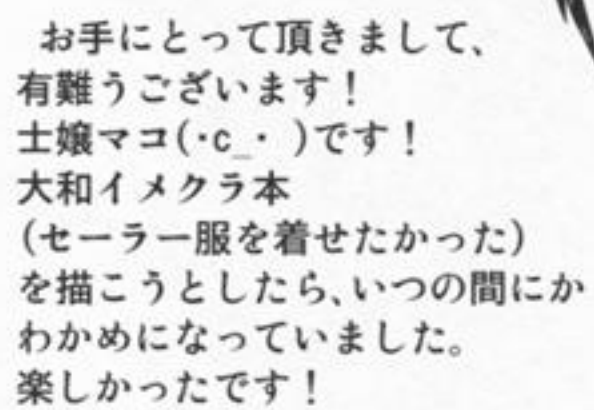 お手にとって頂きまして、
有難うございます！
士嬢マコ(･c_･ )です！
大和イメクラ本
(セーラー服を着せたかった)
を描こうとしたら､いつの間にか
わかめになっていました。
楽しかったです！